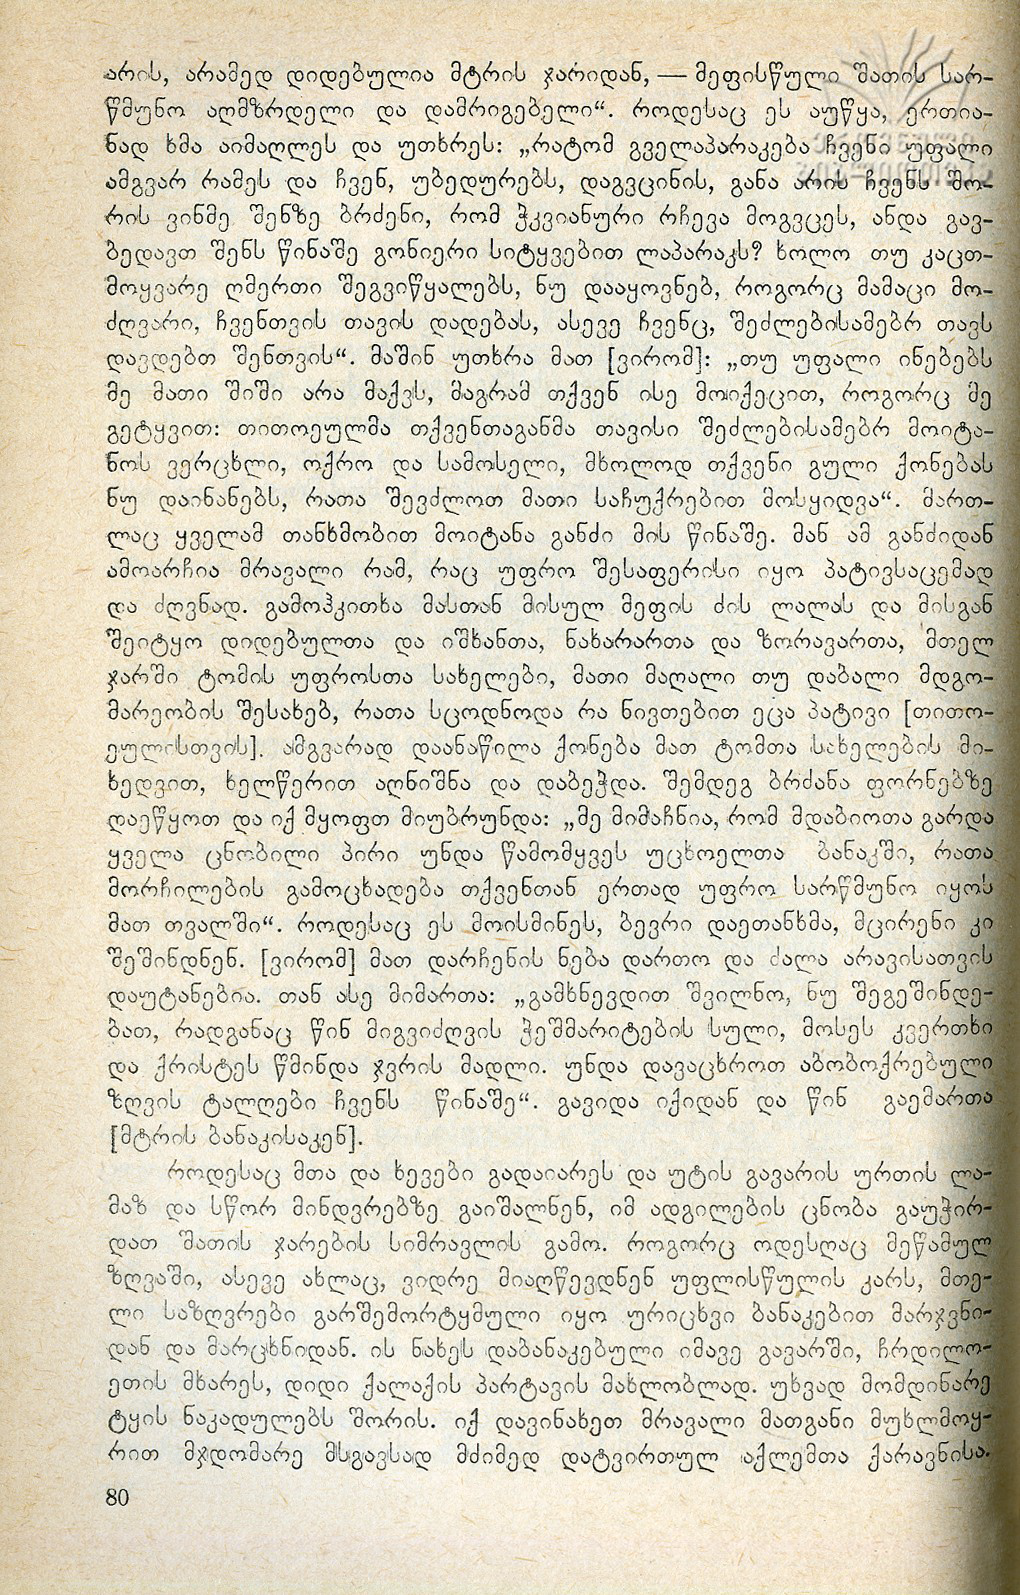 არის, არამედ დიდებულია მტრის ჯარიდან, — მეფისწული შათის სარ-
წმუნო აღმზრდელი და დამრიგებელი“. როდესაც ეს აუწყა, ერთია-
ნად ხმა აიმაღლეს და უთხრეს: „რატომ გველაპარაკება ჩვენი უფალი
ამგვარ რამეს და ჩვენ, უბედურებს, დაგვცინის, განა არის ჩვენს შო-
რის ვინმე შენზე ბრძენი, რომ ჭკვიანური რჩევა მოგვცეს, ანდა გავ-
ბედავთ შენს წინაშე გონიერი სიტყვებით ლაპარაკს? ხოლო თუ კაცთ-
მოყვარე ღმერთი შეგვიწყალებს, ნუ დააყოვნებ, როგორც მამაცი მო-
ძღვარი, ჩვენთვის თავის დადებას, ასევე ჩვენც, შეძლებისამებრ თავს
დავდებთ შენთვის“. მაშინ უთხრა მათ [ვირომ]: „თუ უფალი ინებებს
მე მათი შიში არა მაქვს, მაგრამ თქვენ ისე მოიქეცით, როგორც მე
გეტყვით: თითოეულმა თქვენთაგანმა თავისი შეძლებისამებრ მოიტა-
ნოს ვერცხლი, ოქრო და სამოსელი, მხოლოდ თქვენი გული ქონებას
ნუ დაინანებს, რათა შევძლოთ მათი საჩუქრებით მოსყიდვა“. მართ-
ლაც ყველამ თანხმობით მოიტანა განძი მის წინაშე. მან ამ განძიდან
ამოარჩია მრავალი რამ, რაც უფრო შესაფერისი იყო პატივსაცემად
და ძღვნად. გამოჰკითხა მასთან მისულ მეფის ძის ლალას და მისგან
შეიტყო დიდებულთა და იშხანთა, ნახარართა და ზორავართა, მთელ
ჯარში ტომის უფროსთა სახელები, მათი მაღალი თუ დაბალი მდგო-
მარეობის შესახებ, რათა სცოდნოდა რა ნივთებით ეცა პატივი [თითო-
ეულისთვის]. ამგვარად დაანაწილა ქონება მათ ტომთა სახელების მი-
ხედვით, ხელწერით აღნიშნა და დაბეჭდა. შემდეგ ბრძანა ფორნებზე
დაეწყოთ და იქ მყოფთ მიუბრუნდა: „მე მიმაჩნია, რომ მდაბიოთა გარდა
ყველა ცნობილი პირი უნდა წამომყვეს უცხოელთა ბანაკში, რათა
მორჩილების გამოცხადება თქვენთან ერთად უფრო სარწმუნო იყოს
მათ თვალში“. როდესაც ეს მოისმინეს, ბევრი დაეთანხმა, მცირენი კი
შეშინდნენ. [ვირომ] მათ დარჩენის ნება დართო და ძალა არავისათვის
დაუტანებია. თან ასე მიმართა: „გამხნევდით შვილნო, ნუ შეგეშინდე-
ბათ, რადგანაც წინ მიგვიძღვის ჭეშმარიტების სული, მოსეს კვერთხი
და ქრისტეს წმინდა ჯვრის მადლი. უნდა დავაცხროთ აბობოქრებული
ზღვის ტალღები ჩვენს წინაშე“. გავიდა იქიდან და წინ გაემართა
[მტრის ბანაკისაკენ].
როდესაც მთა და ხევები გადაიარეს და უტის გავარის ურთის ლა-
მაზ და სწორ მინდვრებზე გაიშალნენ, იმ ადგილების ცნობა გაუჭირ-
დათ შათის ჯარების სიმრავლის გამო. როგორც ოდესღაც მეწამულ
ზღვაში, ასევე ახლაც, ვიდრე მიაღწევდნენ უფლისწულის კარს, მთე-
ლი საზღვრები გარშემორტყმული იყო ურიცხვი ბანაკებით მარჯვნი-
დან და მარცხნიდან. ის ნახეს დაბანაკებული იმავე გავარში, ჩრდილო-
ეთის მხარეს, დიდი ქალაქის პარტავის მახლობლად. უხვად მომდინარე
ტყის ნაკადულებს შორის. იქ დავინახეთ მრავალი მათგანი მუხლმოყ-
რით მჯდომარე მსგავსად მძიმედ დატვირთულ აქლემთა ქარავნისა.
80